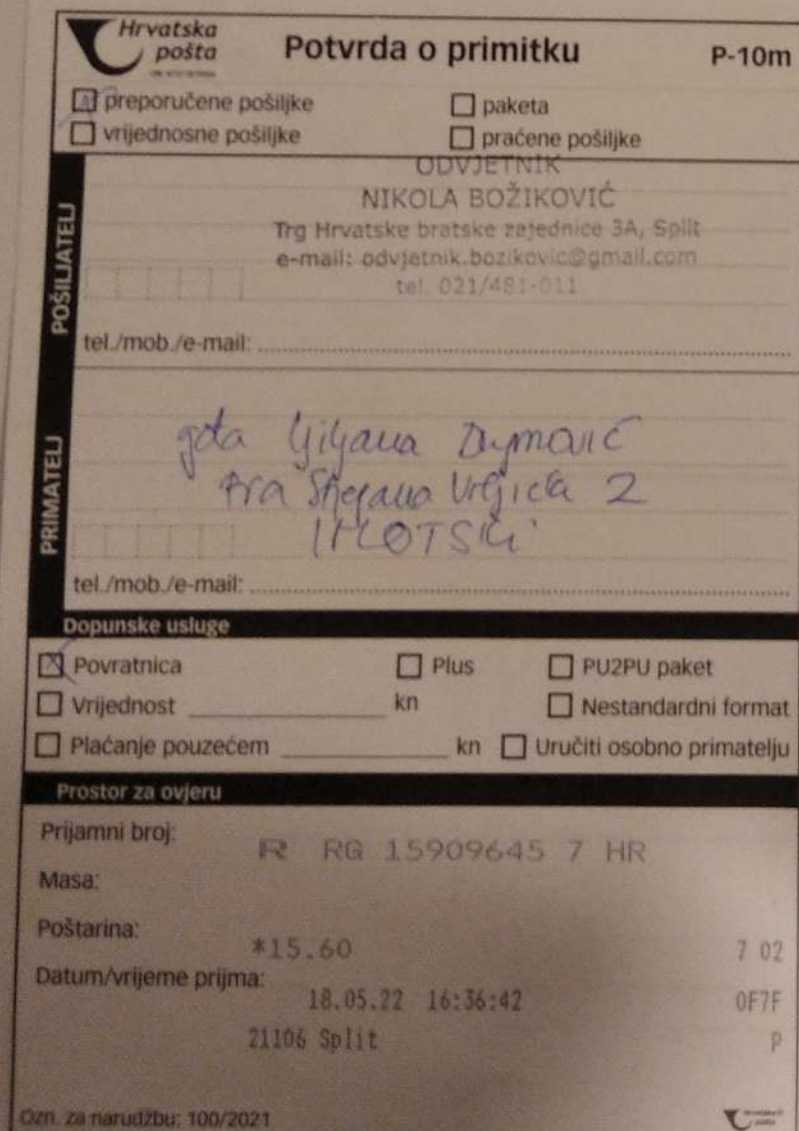 Hrvatska
pošta
Potvrda o primitku
P-10m
preporučene pošiljke
paketa
vrijednosne pošiljke
praćene pošiljke
POŠILJATELJ
ODVJETNIK
NIKOLA BOŽIKOVIĆ
Trg Hrvatske bratske zajednice 3A, Split
e-mail: odvjetnik.bozikovic@gmail.com
tel. 021/481-011
tel./mob./e-mail:
PRIMATELJ
gđa Ljiljana
Fra Stjepana Vrljića 2
IMOTSKI
tel./mob./e-mail:
Dopunske usluge
Povratnica
Plus
PU2PU paket
Vrijednost kn
Nestandardni format
Plaćanje pouzećem kn
Uručiti osobno primatelju
Prostor za ovjeru
Prijamni broj:
R RG 15909645 7 HR
Masa:
Poštarina:
*15.60
7 02
Datum/vrijeme prijma:
18.05.22 16:36:42
0F7F
21106 Split
P
Ozn. za narudžbu: 100/2021